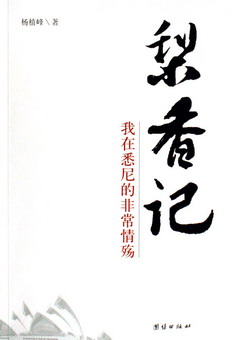 杨植峰\著
梨香记
我在悉尼的非常情殇
团结出版社